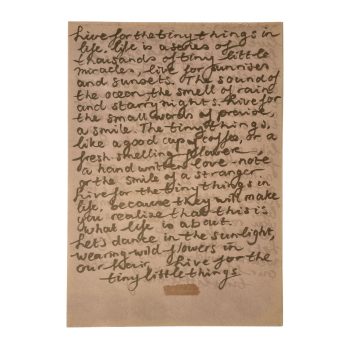 Live for the tiny things in
life. Life is a series of
thousands of tiny little
miracles, live for sunrises
and sunsets. The sound of
the ocean, the smell of rain
and starry nights. Live for
the small words of praise,
a smile. The tiny things,
like a good cup of coffee, or a
fresh smelling flower
a hand written love-note
or the smile of a stranger
Live for the tiny things in
life, because they will make
you realize that this is
what life is about.
Let's dance in the sunlight,
wearing wild flowers in
our hair live for the
tiny little things